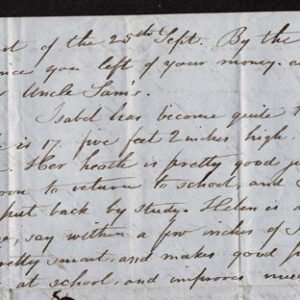 of the 25th Sept. By the
you left of your money.
Uncle Sam's.
Isabel has become quite
is 17. five feet 2 inches high.
Her heath is pretty good
to return to school, and
put back by study. Helen is
say within a few inches of
smart, and makes good
at school, and improves